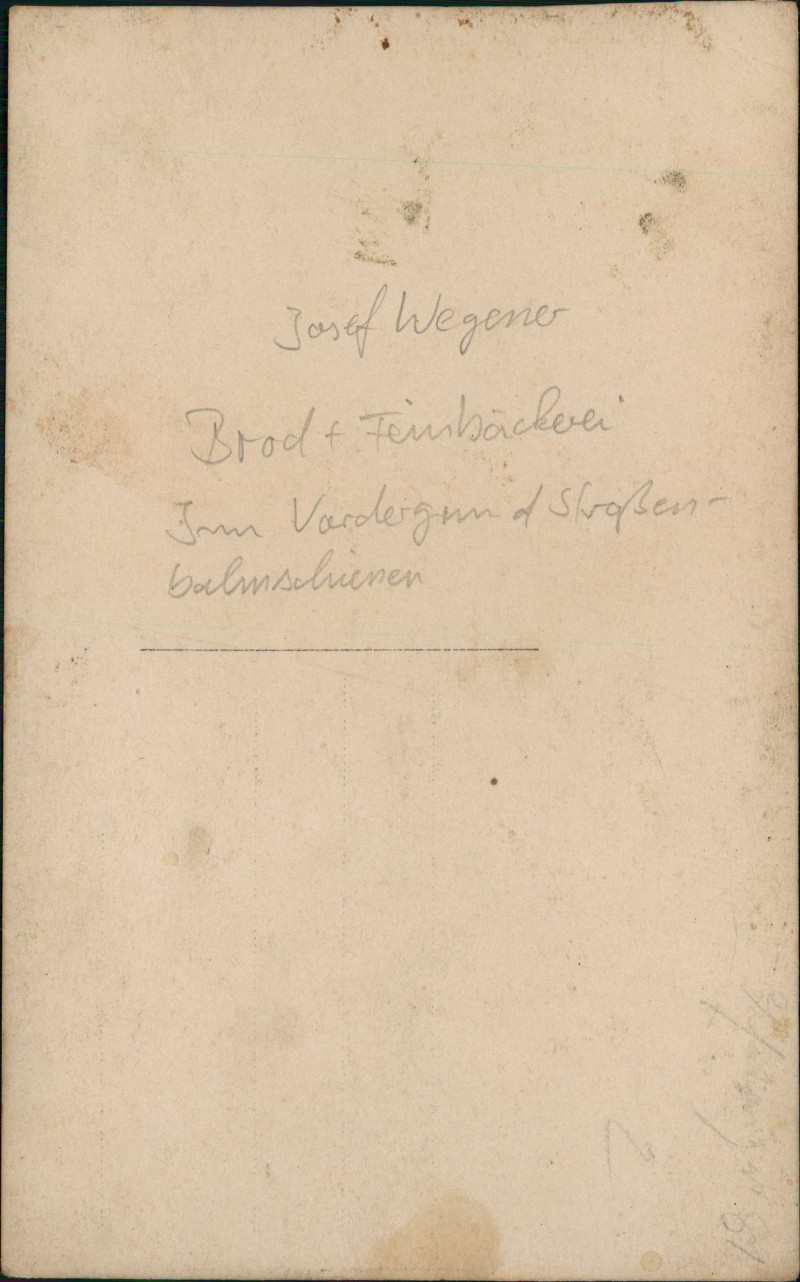 Josef Wegener
Brod + Feinbäckerei
Im Vordergrund Straßen-
bahnschienen
2